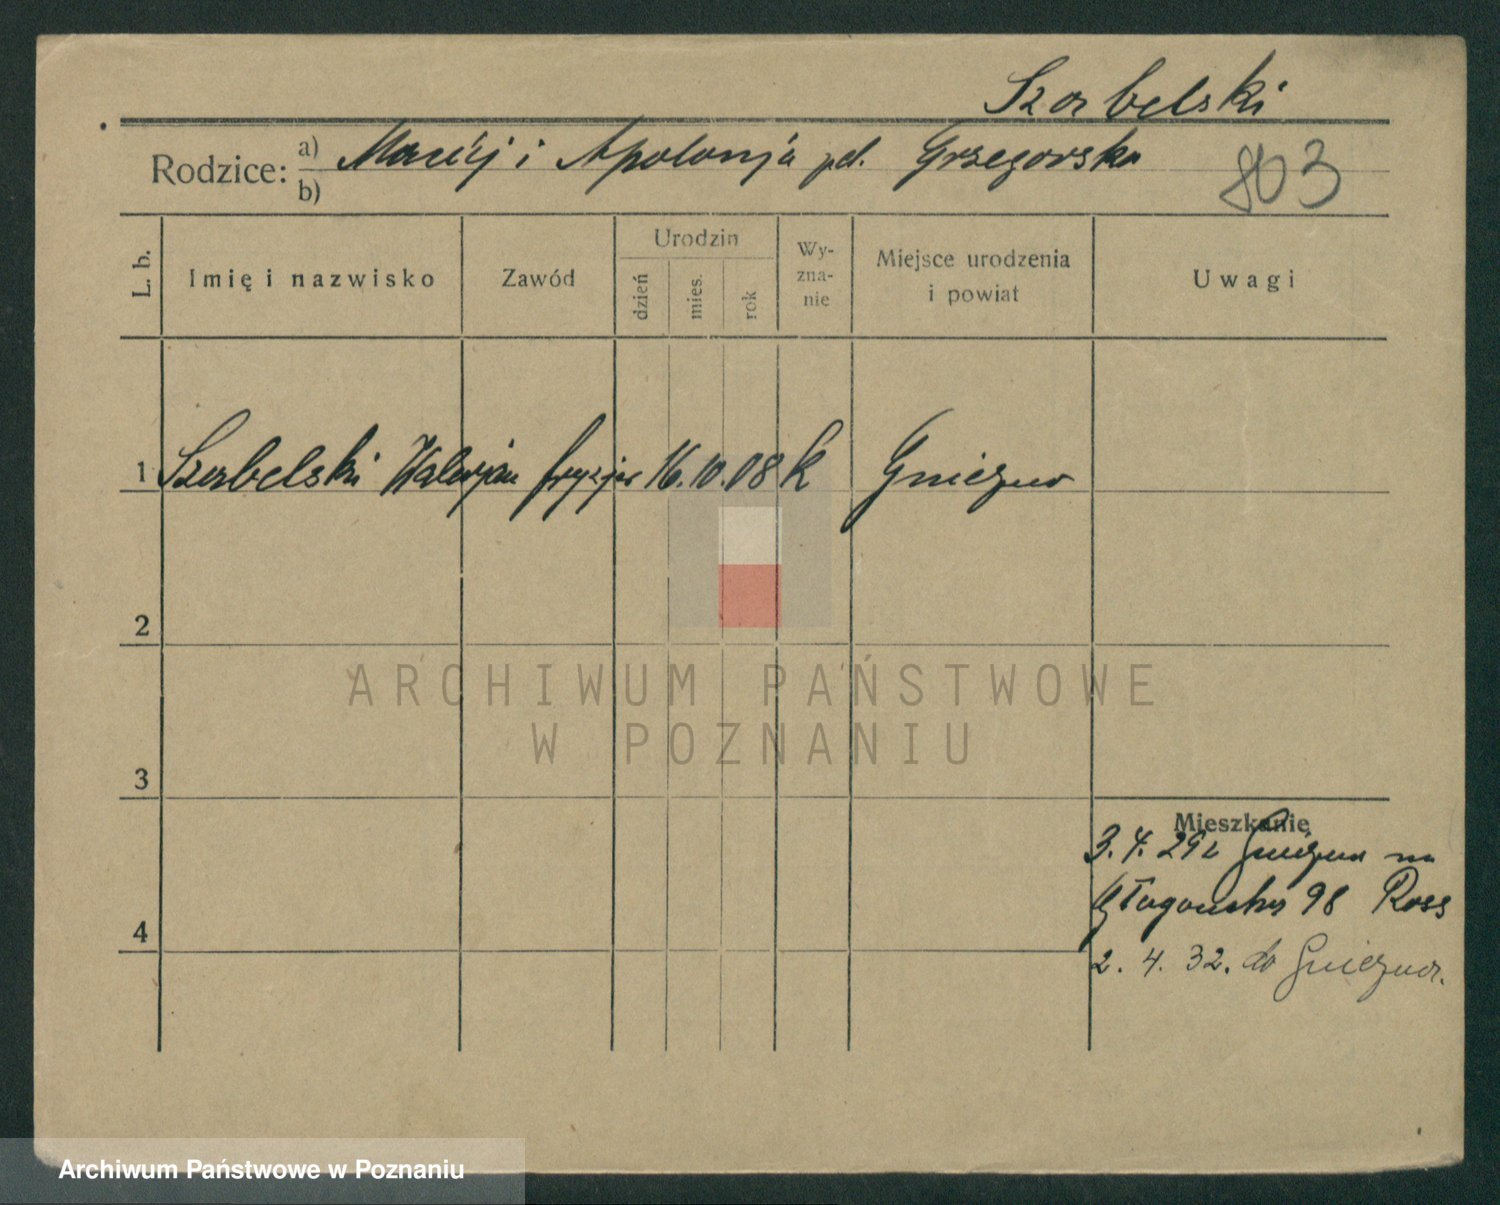 Szarbelski
Rodzice: a) Maciej i Apolonja pd. Grzegorska
b)
803
L. b.
Imię i nazwisko
Zawód
Urodzin
dzień
mies.
rok
Wy-
zna-
nie
Miejsce urodzenia
i powiat
Uwagi
1 Szarbelski Walerjan fryzjer 16. 10. 08 k Gniezno
2
ARCHIWUM PAŃSTWOWE
W POZNANIU
3
Mieszkanie
3. 4. 29 z Gniezna na
98 Ross
4
2. 4. 32. do Gniezna.
Archiwum Państwowe w Poznaniu